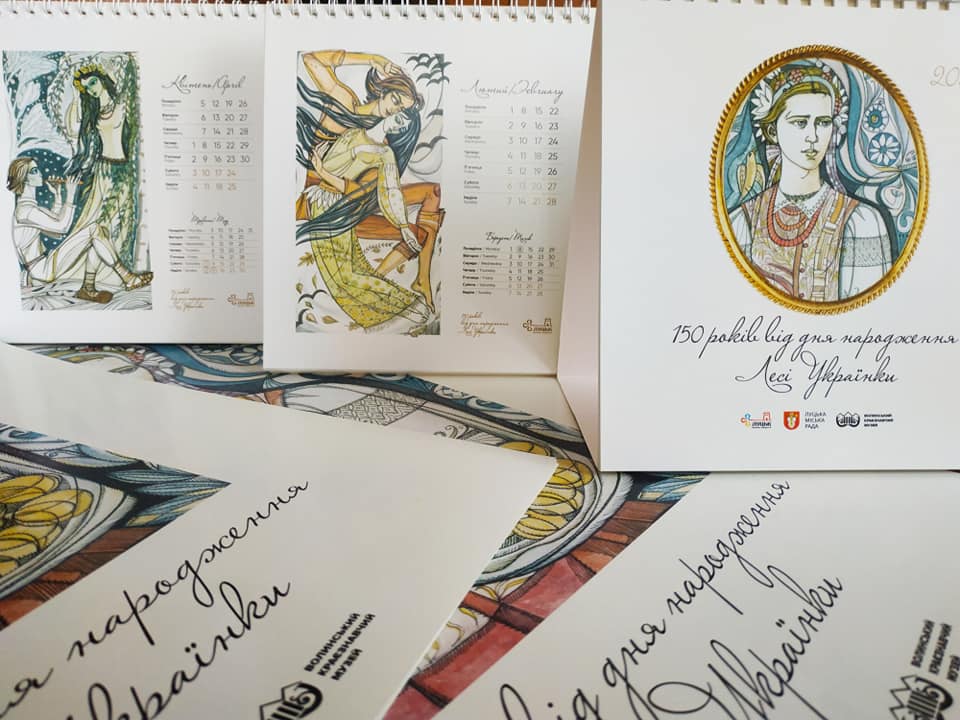 Квітень/April
Понеділок Monday 5 12 19 26
Вівторок Tuesday 6 13 20 27
Середа Wednesday 7 14 21 28
Четвер Thursday 1 8 15 22 29
П'ятниця Friday 2 9 16 23 30
Субота Saturday 3 10 17 24
Неділя Sunday 4 11 18 25
Травень/May
Лютий/February
Понеділок Monday 1 8 15 22
Вівторок Tuesday 2 9 16 23
Середа Wednesday 3 10 17 24
Четвер Thursday 4 11 18 25
П'ятниця Friday 5 12 19 26
Субота Saturday 6 13 20 27
Неділя Sunday 7 14 21 28
Березень/March
Понеділок / Monday 1 8 15 22 29
Вівторок / Tuesday 2 9 16 23 30
Середа / Wednesday 3 10 17 24 31
Четвер / Thursday 4 11 18 25
П'ятниця / Friday 5 12 19 26
Субота / Saturday 6 13 20 27
Неділя / Sunday 7 14 21 28
150 років від дня народження
Лесі Українки
ЛУЦЬК
ЛУЦЬКА
МІСЬКА
РАДА
ВОЛИНСЬКИЙ
КРАЄЗНАВЧИЙ
МУЗЕЙ
ня народження
Українки
ВОЛИНСЬКИЙ
КРАЄЗНАВЧИЙ
МУЗЕЙ
від дня народження
Українки
ВОЛИНСЬКИЙ
КРАЄЗНАВЧИЙ
МУЗЕЙ